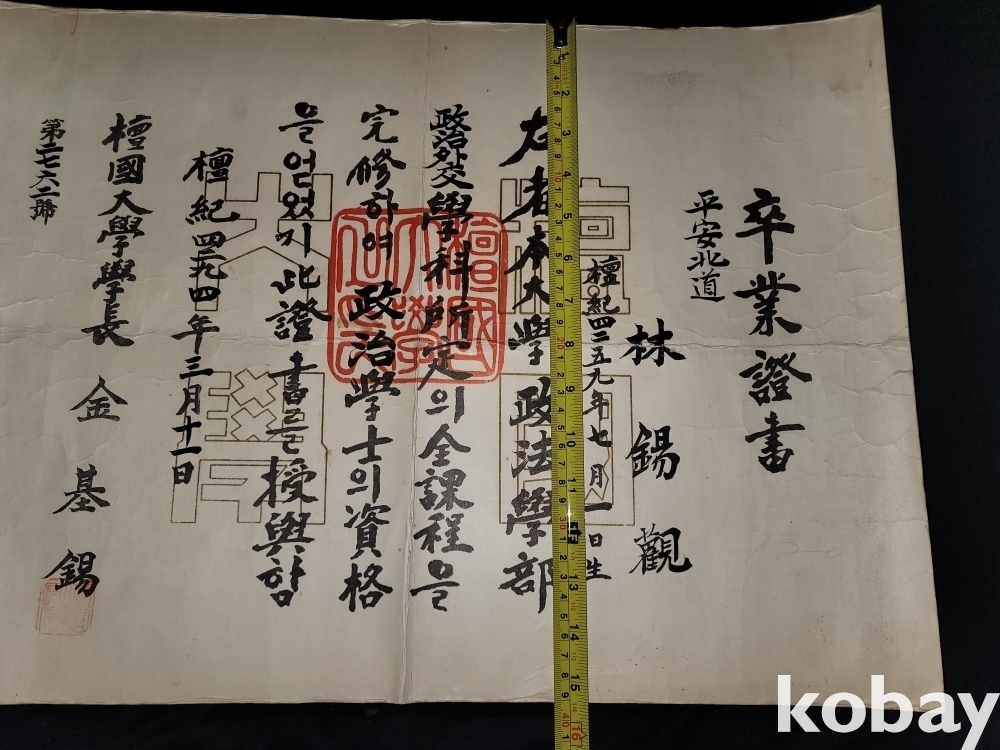 卒業證書
平安北道
林錫觀
檀紀四二五九年七月一日生
右者本大學政法學部
政治外交學科所定의全課程을
完修하여政治學士의資格
을얻었기此證書를授與함
檀紀四二九四年三月十一日
檀國大學學長 金基錫
第二七六二號
kobay